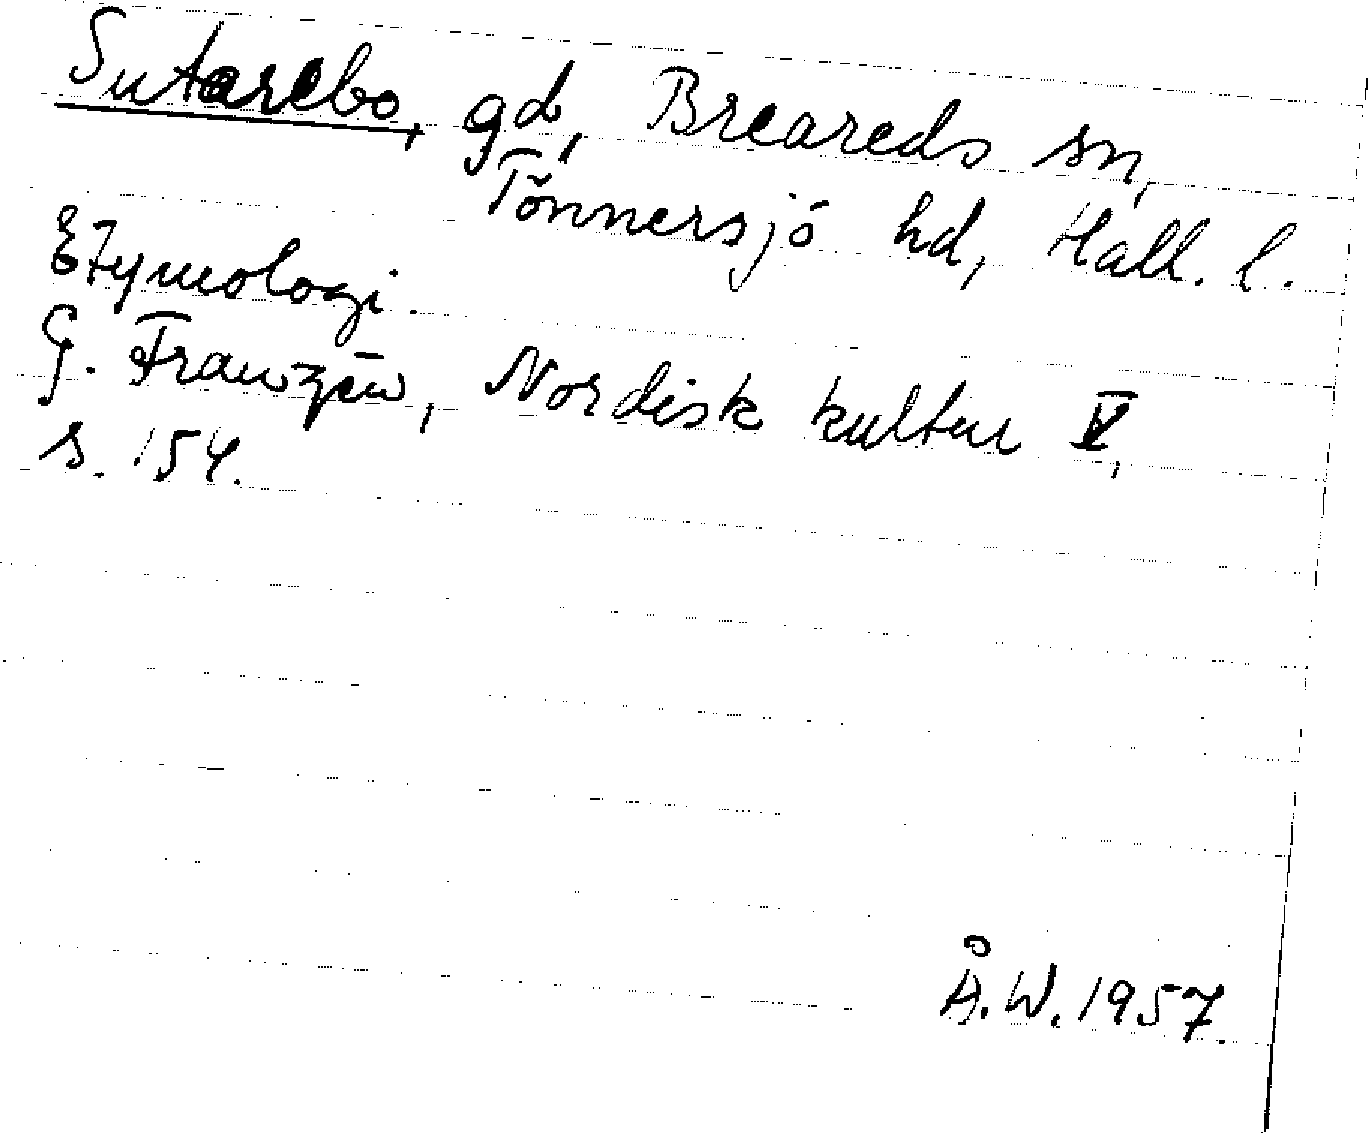 Sutarebo, gd, Breareds sn,
Tönnersjö hd, Hall. l.
Etymologi.
G. Franzén, Nordisk kultur V,
s. 154.
Å.W. 1957.